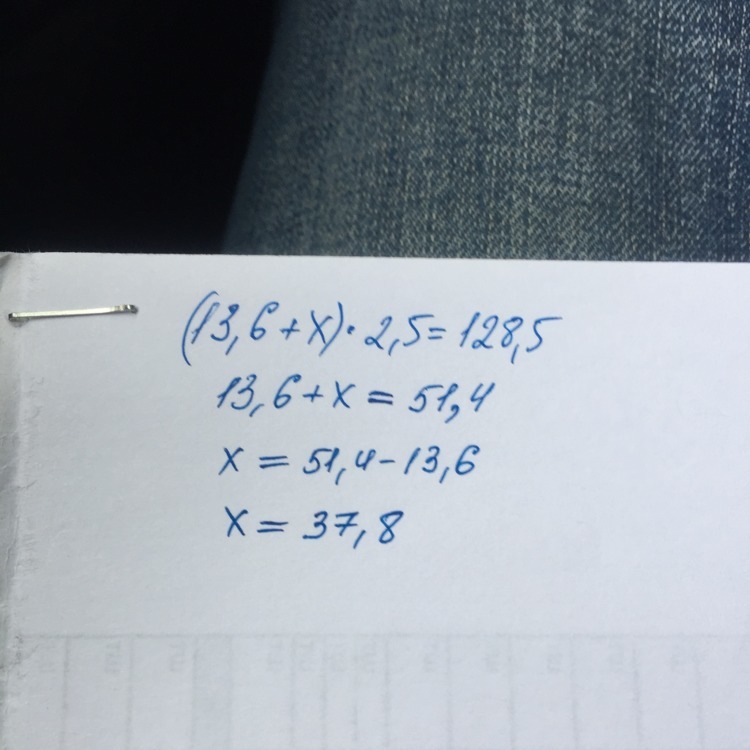 (13,6+x)·2,5=128,5
13,6+x=51,4
x=51,4-13,6
x=37,8